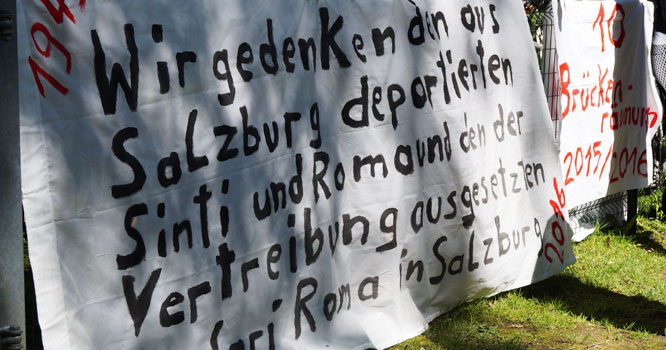 Wir gedenken den aus
Salzburg deportierten
Sinti und Roma und den der
Vertreibung ausgesetzten
Roma in Salzburg
2016
10
Brücken-
2015/2016